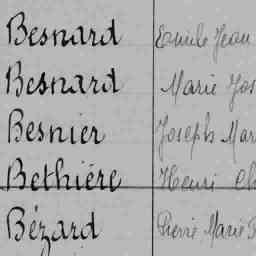 Besnard Emile Jean
Besnard Marie Jos
Besnier Joseph Mar
Bethiére Henri
Bézard Pierre Marie